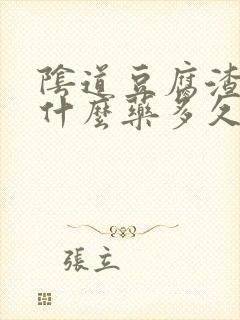 陰道豆腐渣
什麼藥多久
張立